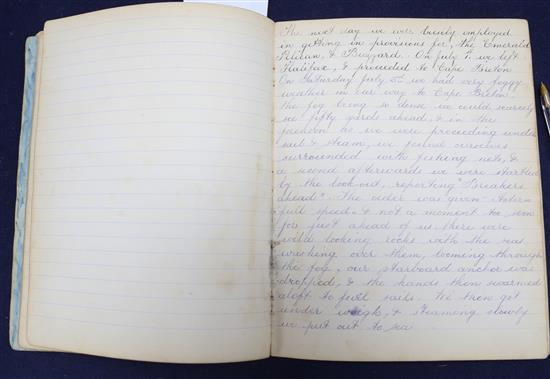 The next day we were busily employed
in getting in provisions for, the Emerald
Pelican, & Buzzard. On July we left
Halifax, & proceeded to Cape Breton
On Saturday July 5th we had very foggy
weather in our way to Cape Breton.
the fog being so dense we could scarcely
see fifty yards ahead, & in the
forenoon as we were proceeding under
sail & steam, we found ourselves
surrounded with fishing nets, &
a second afterwards we were startled
by the look-out, reporting "Breakers
ahead". The order was given Astern
full speed & not a moment too soon
for just ahead of us there were
wild looking rocks with the sea
washing over them, looming through
the fog, our starboard anchor was
dropped, & the hands then swarmed
aloft to furl sails. We then got
under weigh, & steaming slowly
we put out to sea